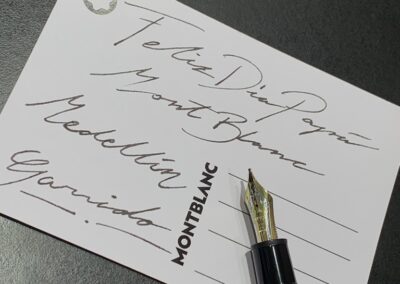 Feliz Día Papá
Mont Blanc
Medellín
Garrido
MONTBLANC